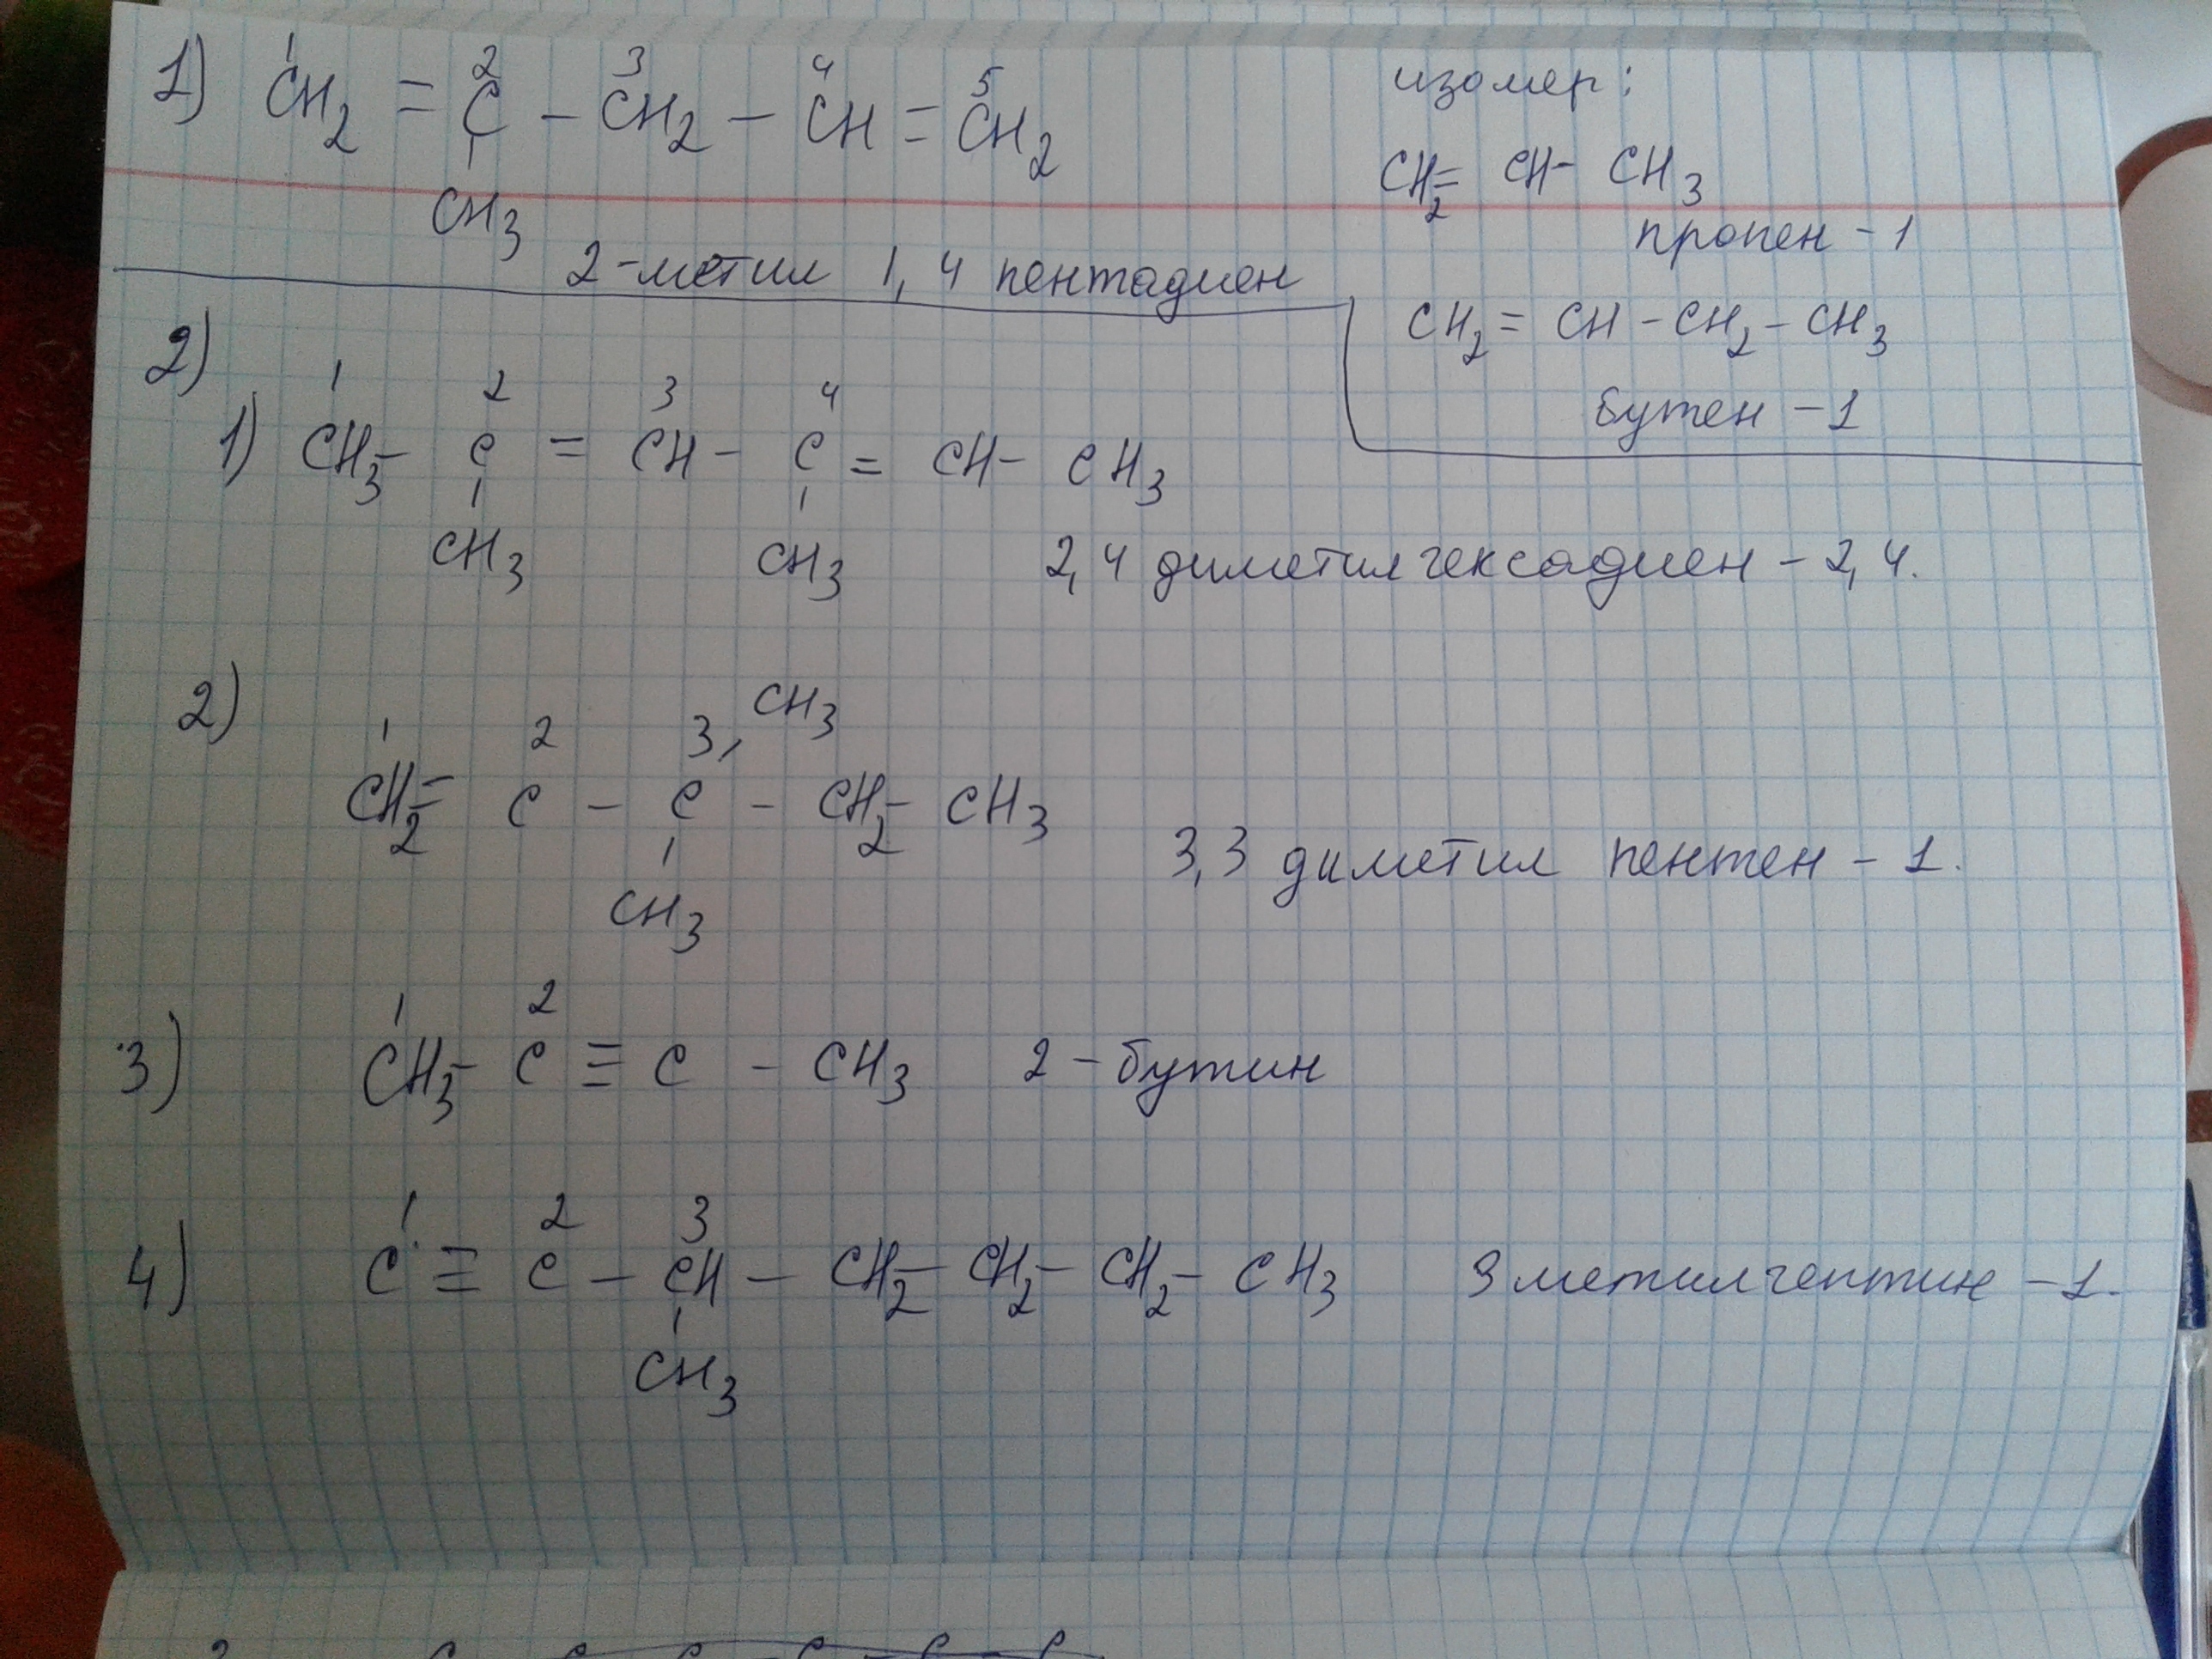 1) CH2 = C - CH2 - CH = CH2
1 2 3 4 5
CH3
2-метил 1,4 пентадиен
изомер:
CH2= CH- CH3
пропен - 1
CH2 = CH - CH2 - CH3
бутен - 1
2)
1 2 3 4
1) CH3- C = CH - C = CH- CH3
CH3 CH3
2,4 диметил гексадиен - 2,4.
2)
1 2 3, CH3
CH2= C - C - CH2- CH3
CH3
3,3 диметил пентен - 1.
3)
1 2
CH3- C ≡ C - CH3 2 - бутин
4)
1 2 3
C ≡ C - CH - CH2 - CH2 - CH2 - CH3 3 метил гептине - 1.
CH3